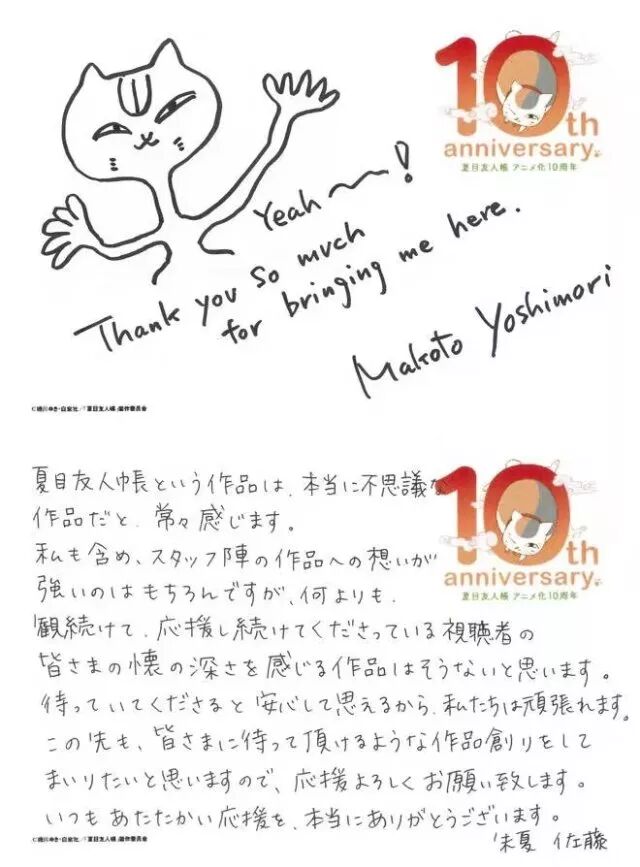 10th
anniversary
夏目友人帳 アニメ化10周年
Yeah ～!
Thank you so much
for bringing me here.
Makoto Yoshimori
©緑川ゆき・白泉社/「夏目友人帳」製作委員会
夏目友人帳という作品は、本当に不思議な
作品だと、常々感じます。
私も含め、スタッフ陣の作品への想いが
強いのはもちろんですが、何よりも、
観続けて、応援し続けてくださっている視聴者の
皆さまの懐の深さを感じる作品はそうないと思います。
待っていてくださると安心して思えるから、私たちは頑張れます。
この先も、皆さまに待って頂けるような作品創りをして
まいりたいと思いますので、応援よろしくお願い致します。
いつもあたたかい応援を、本当にありがとうございます。
佐藤
10th
anniversary
夏目友人帳 アニメ化10周年
©緑川ゆき・白泉社/「夏目友人帳」製作委員会